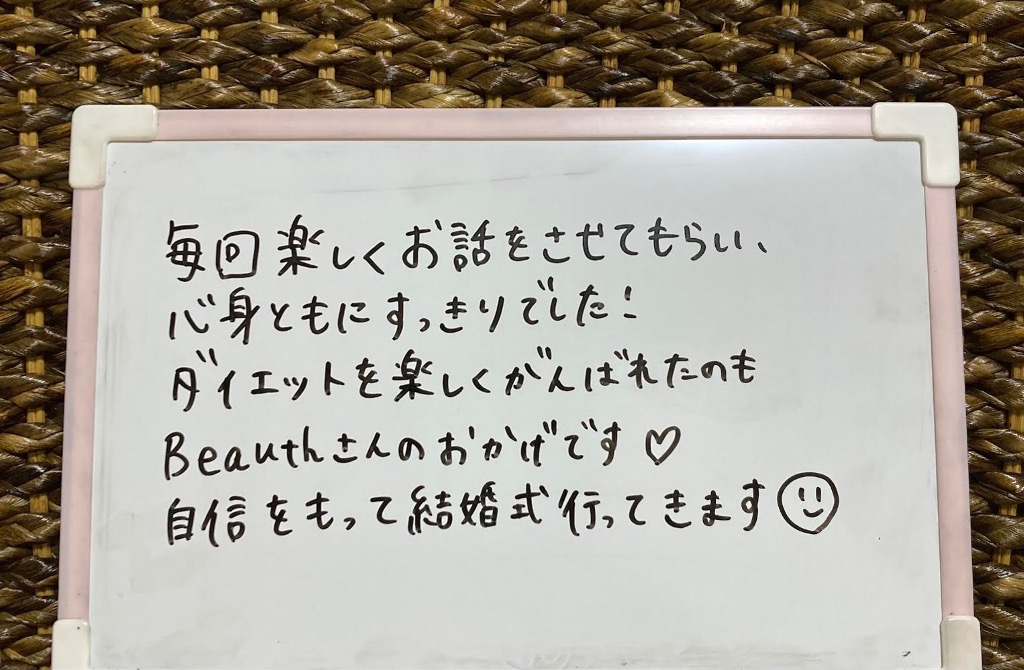 毎回楽しくお話をさせてもらい、
心身ともにすっきりでした!
ダイエットを楽しくがんばれたのも
Beauthさんのおかげです♡
自信をもって結婚式行ってきます☺